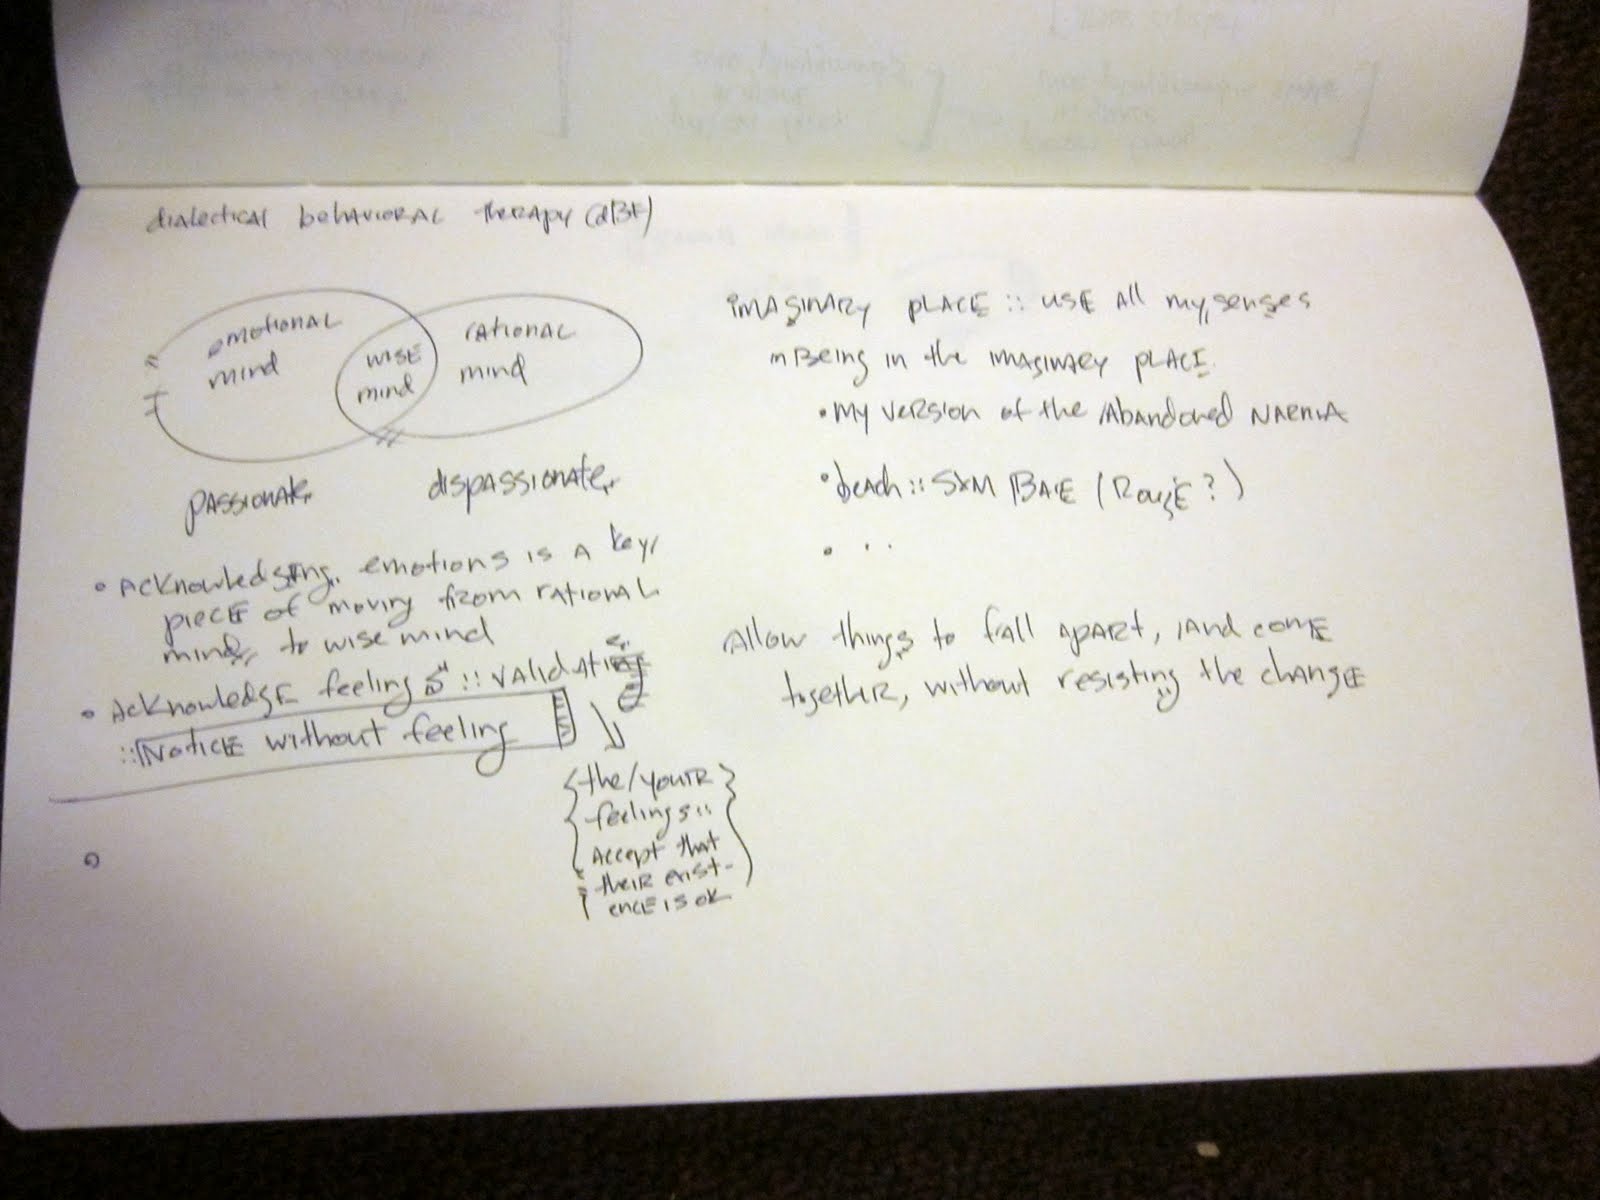 dialectical behavioral therapy (dBt)
emotional
mind
wise
mind
rational
mind
passionate
dispassionate
• Acknowledging emotions is a key
piece of moving from rational
mind to wise mind
• Acknowledge feelings :: validating
:: Notice without feeling
{the/your}
feelings ::
Accept that
their exist-
ence is ok
imaginary place :: use all my senses
in being in the imaginary place.
• my version of the Abandoned Narnia
• beach :: SXM Baie (Rouge?)
• . .
Allow things to fall apart, and come
together, without resisting the change